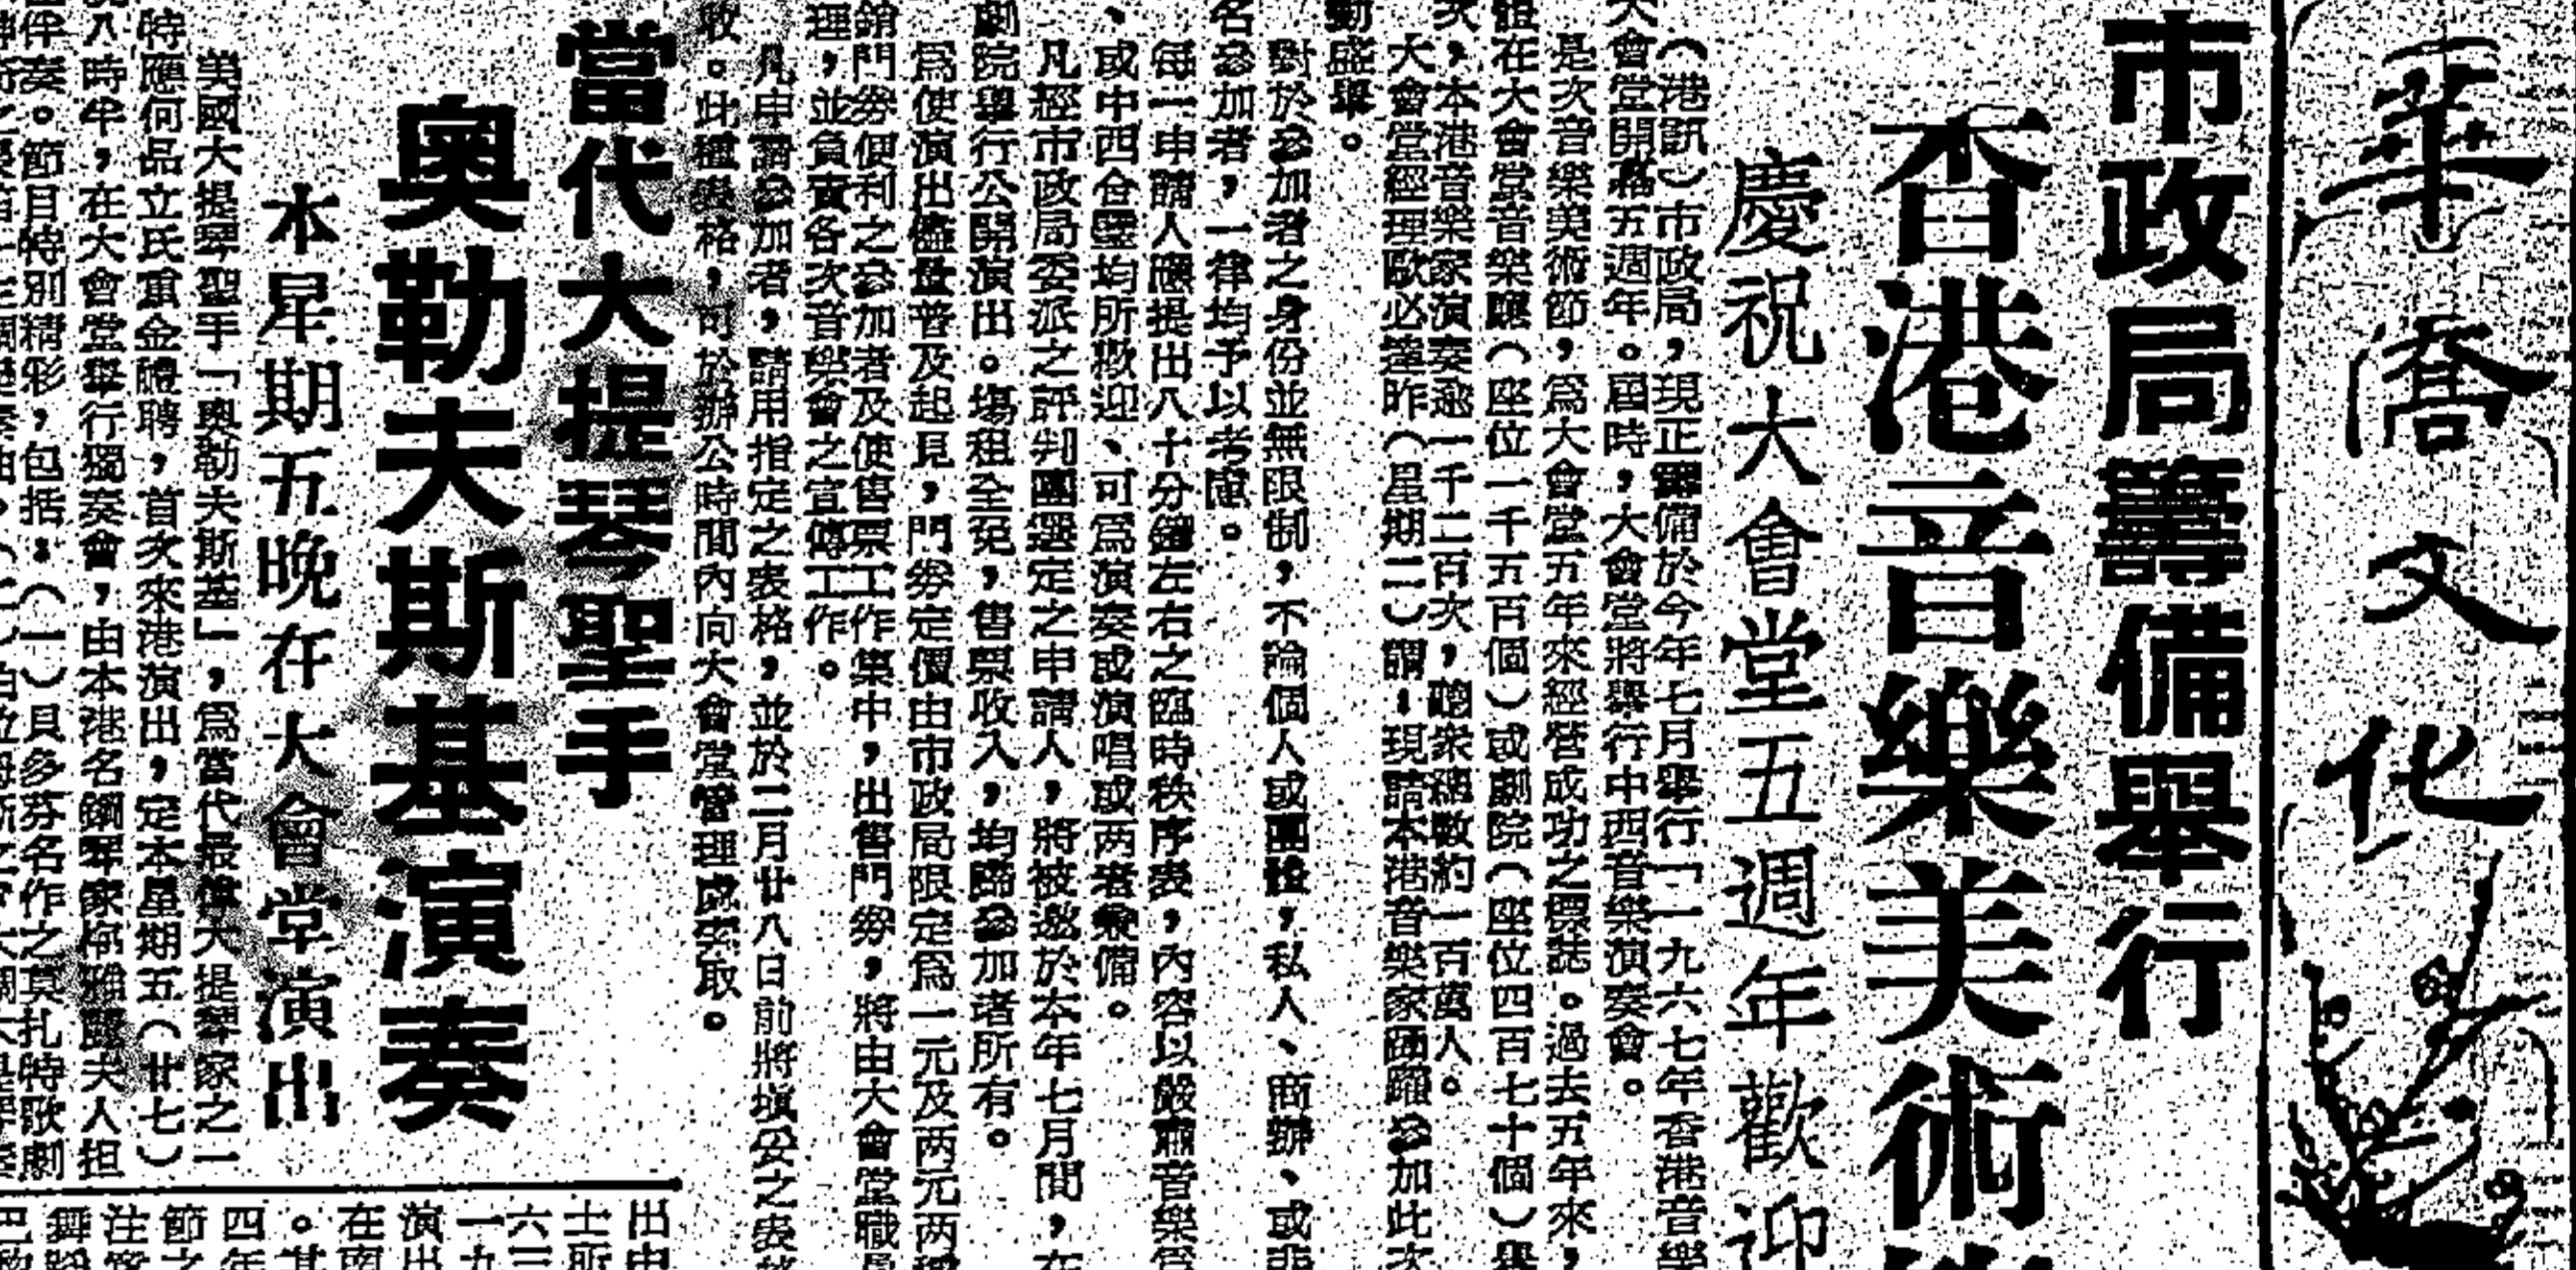 華僑文化
市政局籌備舉行
香港音樂美術
慶祝大會堂五週年歡迎
（港訊）市政局，現正籌備於今年七月舉行「一九六七年香港音樂
大會堂開幕五週年。屆時，大會堂將舉行中西音樂演奏會。
是次音樂美術節，爲大會堂五年來經營成功之標誌。過去五年來，
在大會堂音樂廳（座位一千五百個）或劇院（座位四百七十個）舉
次，本港音樂家演奏逾一千二百次，聽衆總數約一百萬人。
大會堂經理歐必達昨（星期二）謂：現請本港音樂家踴躍參加此次
盛舉。
對於參加者之身份並無限制，不論個人或團體，私人、商辦、或非
名參加者，一律均予以考慮。
每一申請人應提出八十分鐘左右之臨時秩序表，內容以嚴肅音樂爲
、或中西合璧均所歡迎、可爲演奏或演唱或两者兼備。
凡經市政局委派之評判團選定之申請人，將被邀於本年七月間，在
劇院舉行公開演出。塲租全免，售票收入，均歸參加者所有。
爲使演出儘量普及起見，門券定價由市政局限定爲一元及两元两種
銷門券便利之參加者及使售票工作集中，出售門券，將由大會堂職員
理，並負責各次音樂會之宣傳工作。
凡申請參加者，請用指定之表格，並於二月廿八日前將塡妥之表格
收。此種表格，可於辦公時間內向大會堂管理處索取。
當代大提琴聖手
奧勒夫斯基演奏
本星期五晚在大會堂演出
美國大提琴聖手「奧勒夫斯基」，爲當代最偉大提琴家之一
特應何品立氏重金禮聘，首次來港演出，定本星期五（廿七）
八時半，在大會堂舉行獨奏會，由本港名鋼琴家 夫人担
伴奏。節目特別精彩，包括：（一）貝多芬名作之莫扎特歌劇
出中
士所
六三
一九
演出
在南
。其
四年
節之
注
舞蹈
巴黎